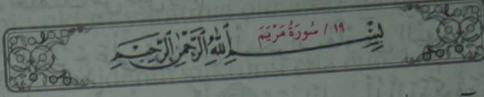 ١٩ / سُورَةُ مَرْيَمَ
بِسْمِ ٱللَّهِ ٱلرَّحْمَٰنِ ٱلرَّحِيمِ